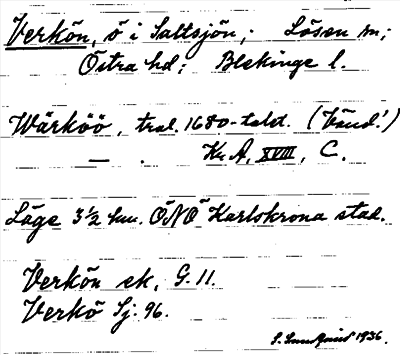 Verkön, ö i Saltsjön; Lösen sn;
Östra hd; Blekinge l.
Wärköö, trol. 1680-talet. (Vänd!)
— . Kr. A, XVIII, C.
Läge 3½ km. ÖNÖ Karlskrona stad.
Verkön ek, G. 11.
Verkö Sj. 96.
1936.